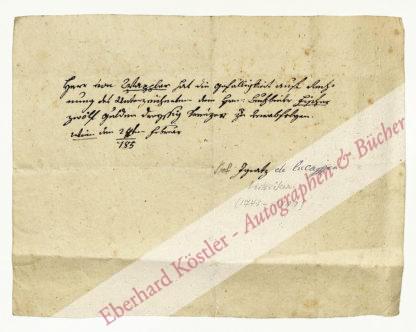 Herr von Wappler hat die Gefälligkeit auf Rech-
nung des Unterzeichneten dem Herrn Buchbinder
zwölf Gulden dreyssig Kreuzer zu verabfolgen.
Wien den 28ten Februar
185
Ignatz de Luca
Eberhard Köstler - Autographen & Bücher